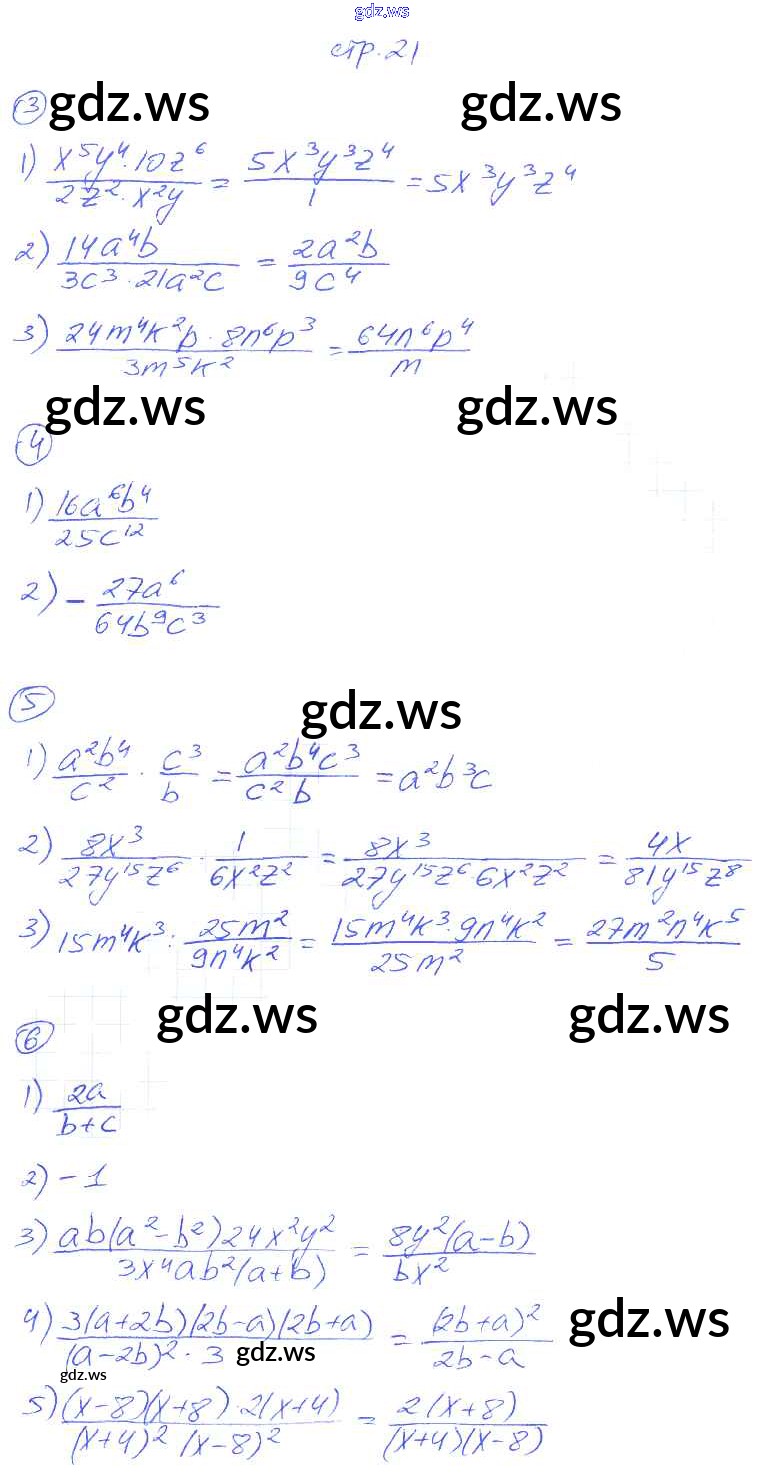 gdz.ws
стр. 21
3 gdz.ws gdz.ws
1) x⁵y⁴·10z⁶ / 2z²·x²y = 5x³y³z⁴ / 1 = 5x³y³z⁴
2) 14a⁴b / 3c³·21a²c = 2a²b / 9c⁴
3) 24m⁴k²p·8n⁶p³ / 3m⁵k² = 64n⁶p⁴ / m
gdz.ws gdz.ws
4
1) 16a⁶b⁴ / 25c¹²
2) - 27a⁶ / 64b⁹c³
5 gdz.ws
1) a²b⁴ / c² · c³ / b = a²b⁴c³ / c²b = a²b³c
2) 8x³ / 27y¹⁵z⁶ · 1 / 6x²z² = 8x³ / 27y¹⁵z⁶·6x²z² = 4x / 81y¹⁵z⁸
3) 15m⁴k³ : 25m² / 9n⁴k² = 15m⁴k³·9n⁴k² / 25m² = 27m²n⁴k⁵ / 5
gdz.ws gdz.ws
6
1) 2a / b+c
2) -1
3) ab(a²-b²)24x²y² / 3x⁴ab²(a+b) = 8y²(a-b) / bx²
4) 3(a+2b)(2b-a)(2b+a) / (a-2b)²·3 = (2b+a)² / 2b-a
gdz.ws gdz.ws
gdz.ws
5) (x-8)(x+8)·2(x+4) / (x+4)²(x-8)² = 2(x+8) / (x+4)(x-8)